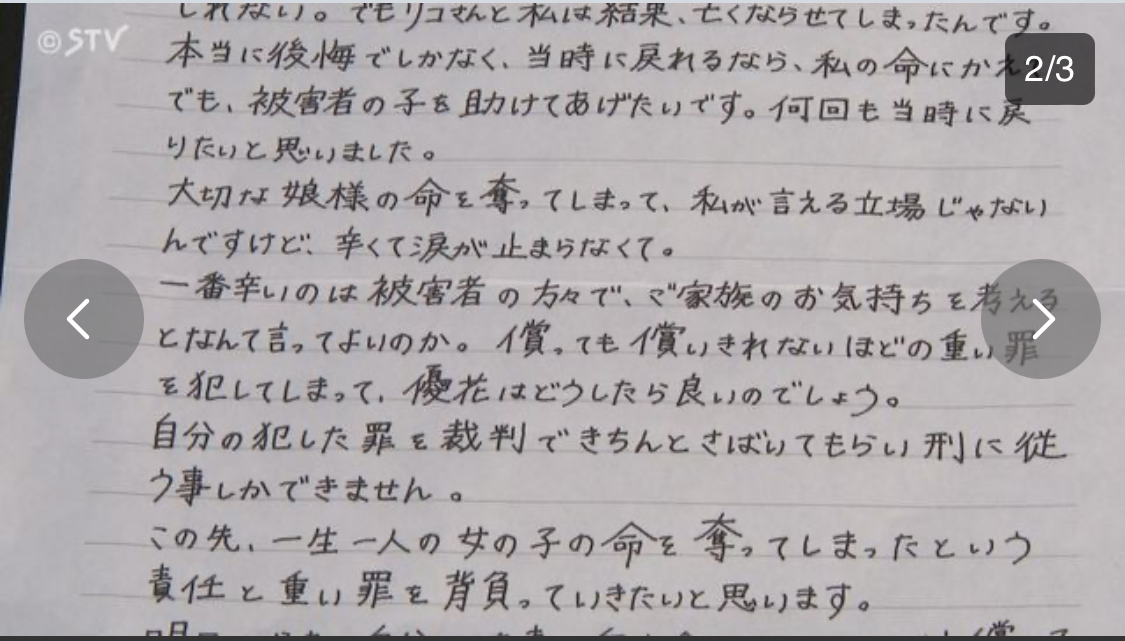 しれない。でもリコさんと私は結果、亡くならせてしまったんです。
© STV
本当に後悔でしかなく、当時に戻れるなら、私の命にかえ
2/3
でも、被害者の子を助けてあげたいです。何回も当時に戻
りたいと思いました。
大切な娘様の命を奪ってしまって、私が言える立場じゃない
んですけど、辛くて涙が止まらなくて。
一番辛いのは被害者の方々で、ご家族のお気持ちを考える
となんて言ってよいのか。償っても償いきれないほどの重い罪
を犯してしまって、優花はどうしたら良いのでしょう。
自分の犯した罪を裁判できちんとさばいてもらい刑に従
う事しかできません。
この先、一生一人の女の子の命を奪ってしまったという
責任と重い罪を背負っていきたいと思います。